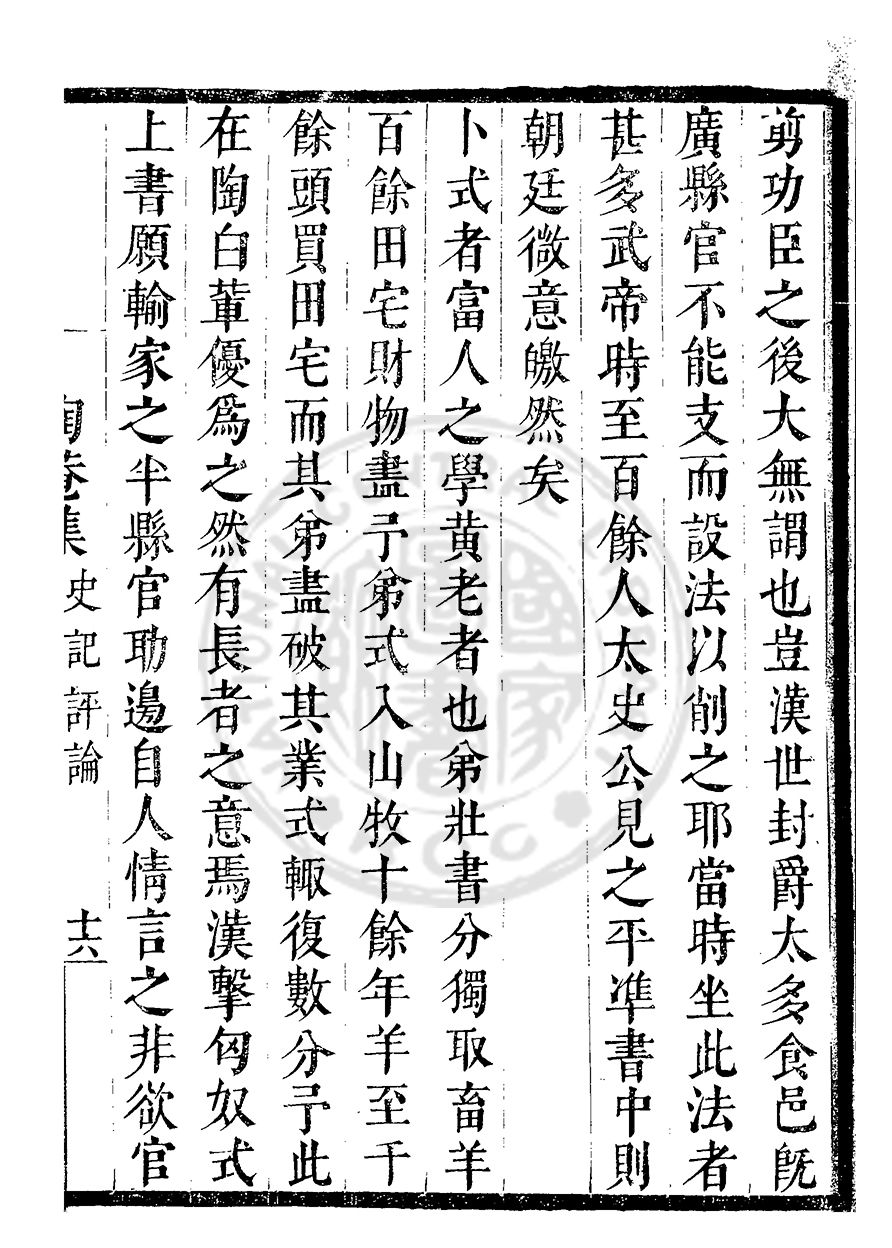 剪功臣之後大無謂也豈漢世封爵太多食邑既
廣縣官不能支而設法以削之耶當時坐此法者
甚多武帝時至百餘人太史公見之平準書中則
朝廷微意皦然矣
卜式者富人之學黄老者也弟壯書分獨取畜羊
百餘田宅財物盡予弟式入山牧十餘年羊至千
餘頭買田宅而其弟盡破其業式輙復數分予此
在陶白輩優爲之然有長者之意焉漢擊匈奴式
上書願輸家之半縣官助邊自人情言之非欲官
陶菴集 史記評論 十六